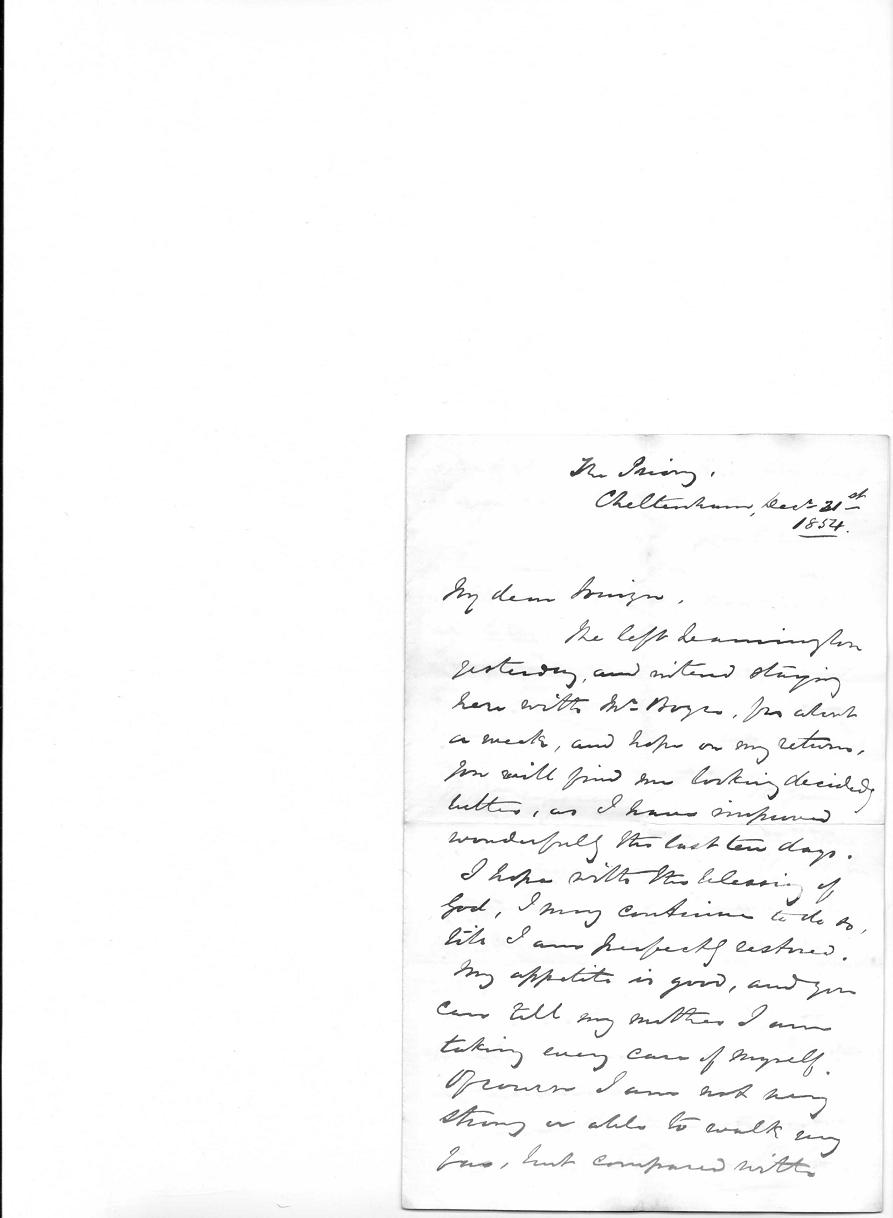 The Priory,
Cheltenham, Decr 31st
1854.
My dear
We left Leamington
yesterday, and intend staying
here with Mrs, for about
a week, and hope on my return,
you will find me looking decidedly
better, as I have improved
wonderfully the last ten days.
I hope with the blessing of
God, I may continue to do so,
till I am perfectly restored.
My appetite is good, and you
can tell my mother I am
taking every care of myself.
Of course I am not very
strong or able to walk very
far, but compared with